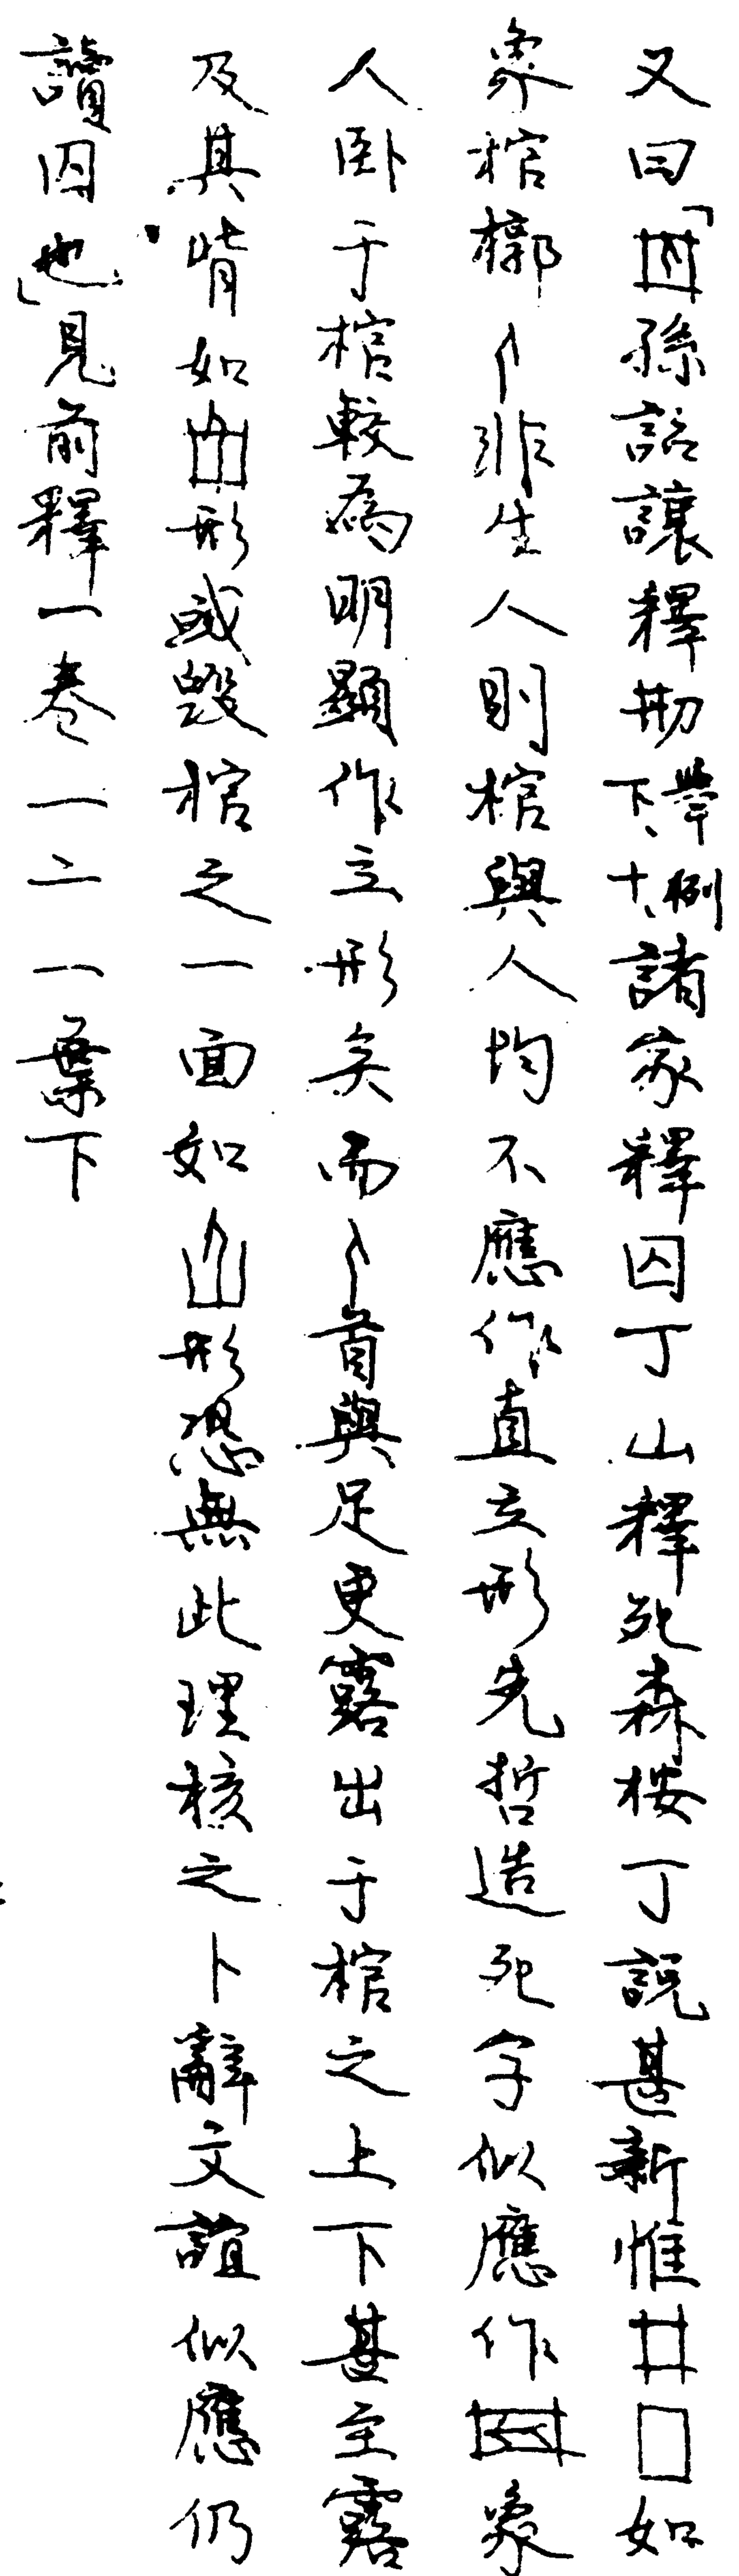 又曰「孫詒讓釋㓝舉例下、十、諸家釋囚丁山釋死森桉丁說甚新惟井囗如
象棺槨人非生人則棺與人均不應作直立形先哲造死字似應作象
人臥于棺較為明顯作立形矣而人首與足更露出于棺之上下甚至露
及其脊如形或毀棺之一面如形恐無此理核之卜辭文誼似應仍
讀囚也」見前釋一卷一二一葉下